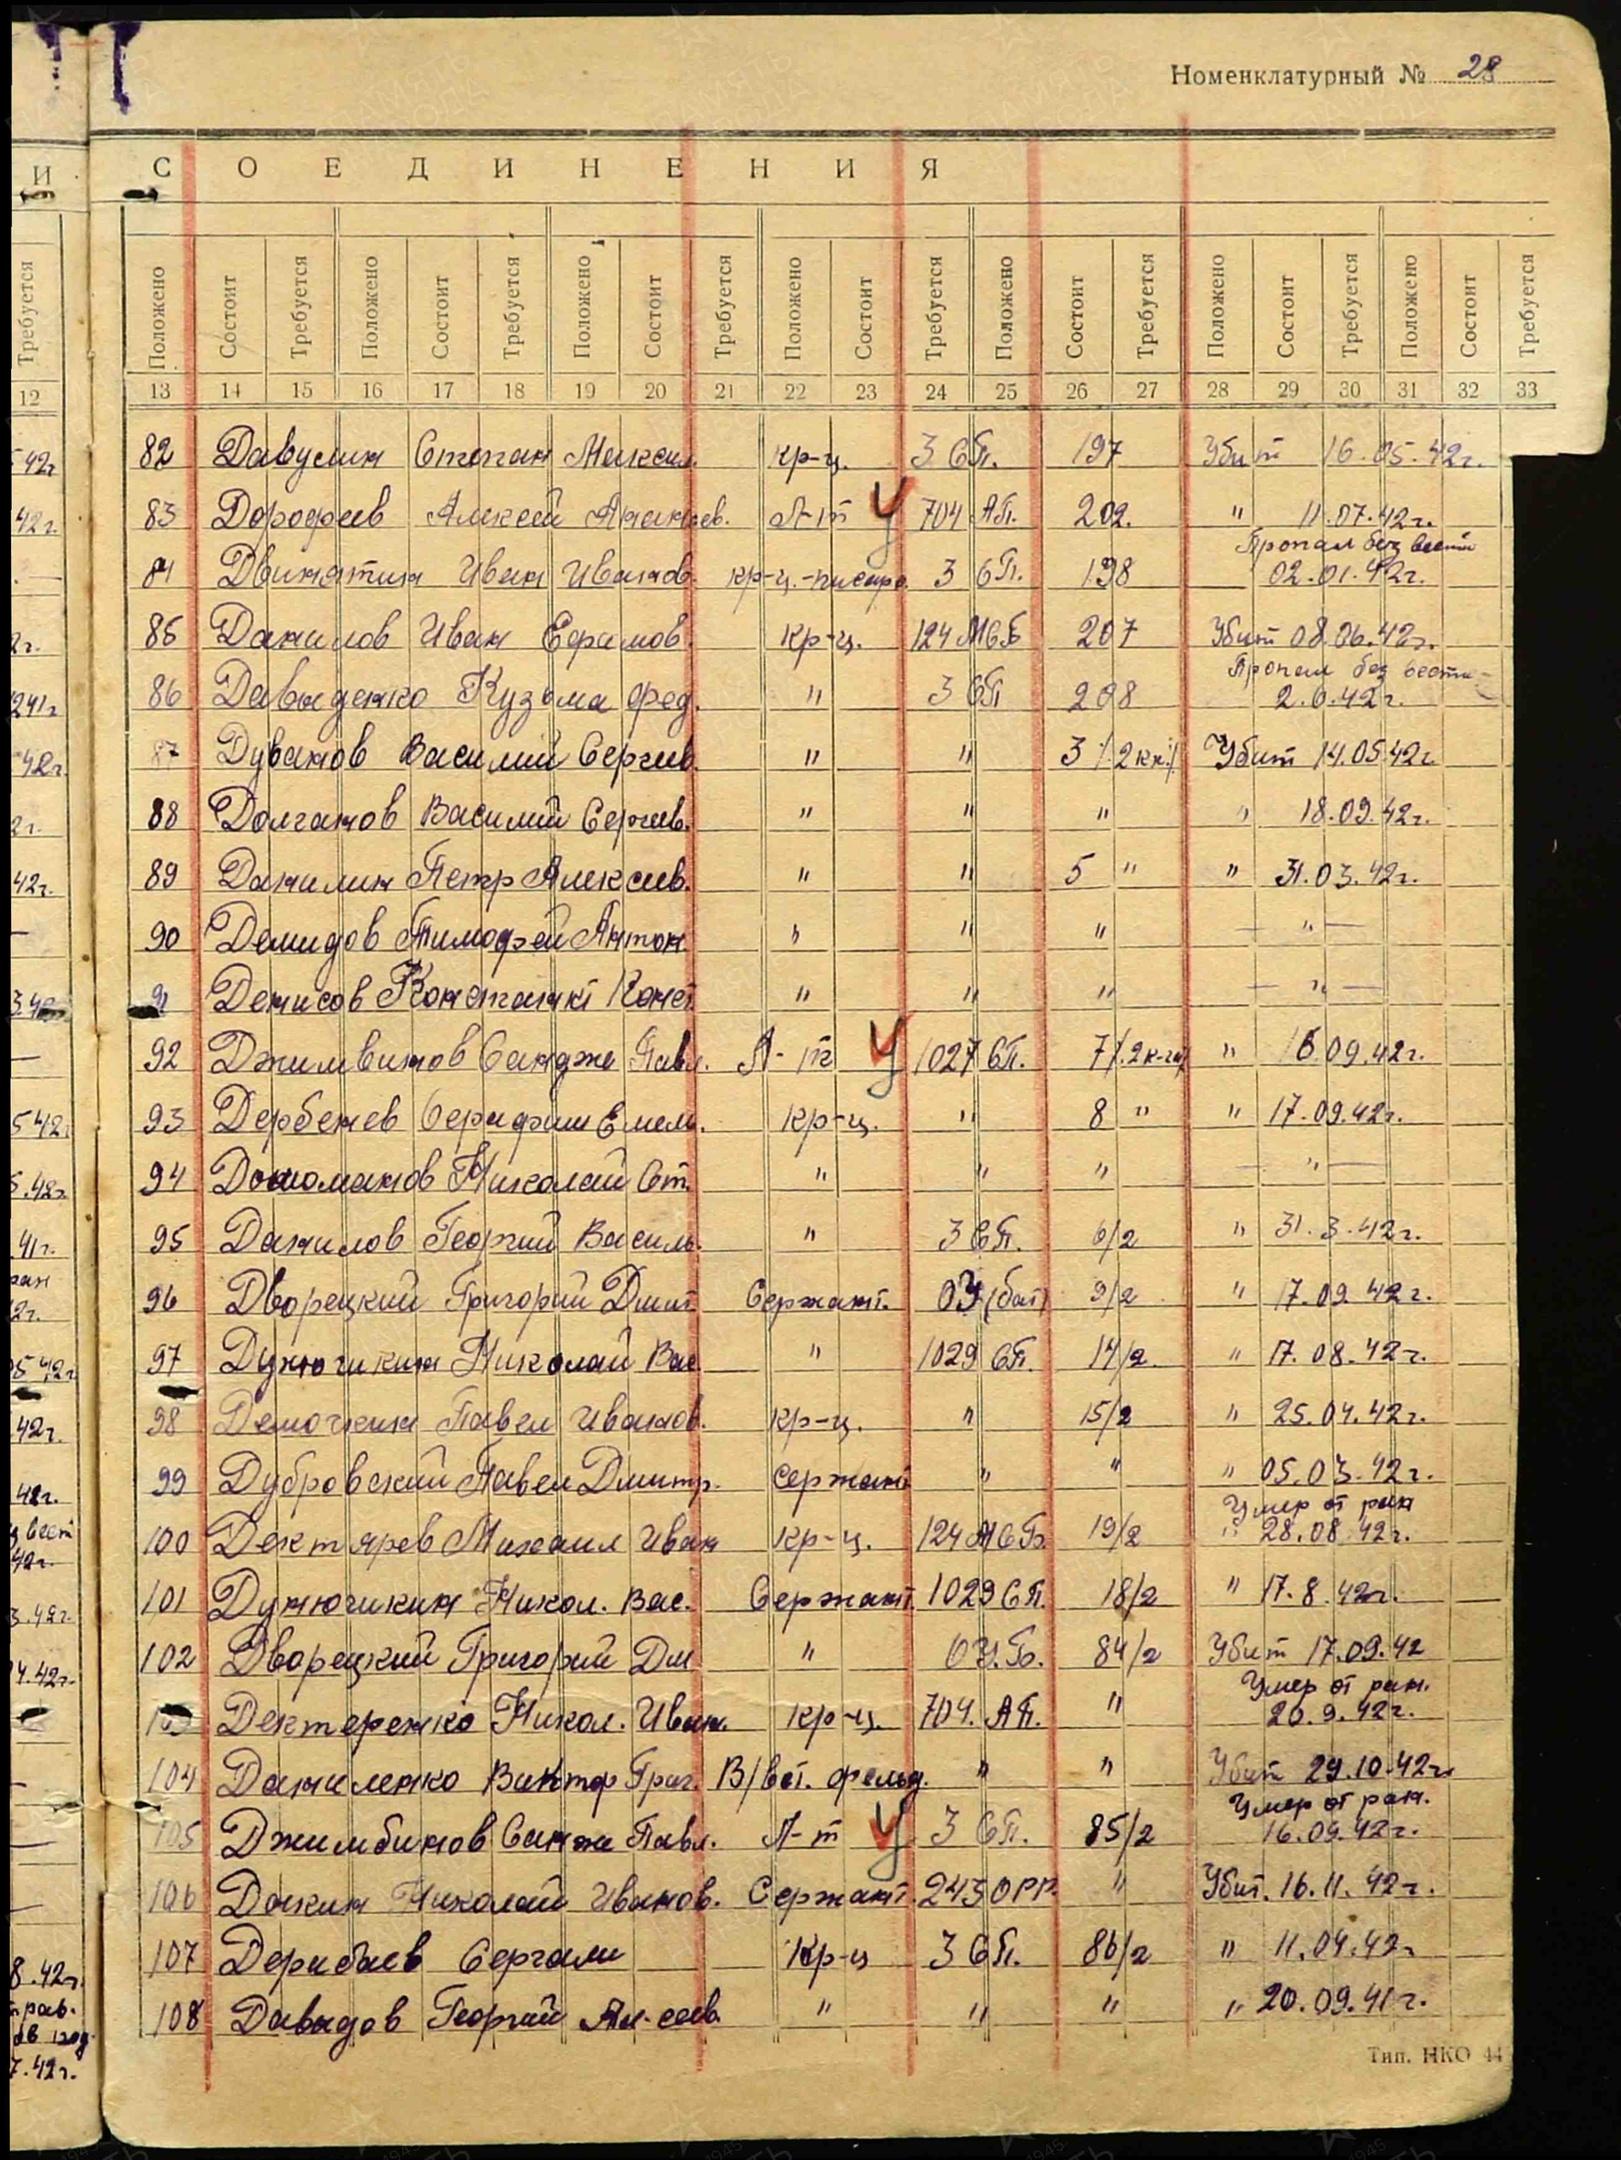 Номенклатурный № 28
И
С О Е Д И Н Е Н И Я
Требуется Положено Состоит Требуется Положено Состоит Требуется Положено Состоит Требуется Положено Состоит Требуется Положено Состоит Требуется Положено Состоит Требуется Положено Состоит Требуется
12 13 14 15 16 17 18 19 20 21 22 23 24 25 26 27 28 29 30 31 32 33
82 Давулин Степан Максим. кр-ц. 3 СП. 197 Убит 16.05.42г.
83 Дорофеев Алексей Ананьев. Л-т У 704 АП. 202. " 11.07.42г.
Пропал без вести
84 Двинятин Иван Иванов. кр-ц.-писарь 3 СП. 198 02.01.42г.
85 Данилов Иван Ефимов. кр-ц. 124 МСБ 207 Убит 08.06.42г.
Пропал без вести
86 Давыденко Кузьма Фед. " 3 СП 208 2.6.42г.
87 Дуванов Василий Сергеев. " " 3 /2 кн./ Убит 14.05.42г.
88 Долганов Василий Сергеев. " " " " 18.09.42г.
89 Данилин Петр Алексеев. " " 5 " " 31.03.42г.
90 Демидов Тимофей Антон. " " " — " —
91 Денисов Константин Конст. " " " — " —
92 Джимвинов Санджа Павл. Л-т У 1027 СП. 7 /2 к-га/ " 16.09.42г.
93 Дербенев Серафим Емел. кр-ц. " 8 " " 17.09.42г.
94 Домоманов Николай Ст. " " " — " —
95 Данилов Георгий Василь. " 3 СП. 6/2 " 31.3.42г.
96 Дворецкий Григорий Дмит. Сержант. ОУ (бат) 9/2 " 17.09.42г.
97 Дунючикин Николай Вас. " 1029 СП. 14/2 " 17.08.42г.
98 Демочкин Павел Иванов. кр-ц. " 15/2 " 25.04.42г.
99 Дубровский Павел Дмитр. сержант " " " 05.03.42г.
Умер от ран
100 Дектярев Михаил Иван кр-ц. 124 МСБ 19/2 " 28.08.42г.
101 Дунючикин Никол. Вас. Сержант 1029 СП. 18/2 " 17.8.42г.
102 Дворецкий Григорий Дм. " ОУ.Б. 84/2 Убит 17.09.42
Умер от ран.
103 Дектеренко Никол. Иван. кр-ц. 704. АП. " 20.9.42г.
104 Даниленко Виктор Григ. В/вет. фельд. " " Убит 29.10.42г.
Умер от ран.
105 Джимбинов Санжа Павл. Л-т У 3 СП. 85/2 16.09.42г.
106 Докин Николай Иванов. Сержант. 243 ОРР. " Убит. 16.11.42г.
107 Дерибаев Сергали Кр-ц 3 СП. 86/2 " 11.04.42г
108 Давыдов Георгий Ал-еев. " " " " 20.09.41г.
Тип. НКО 44